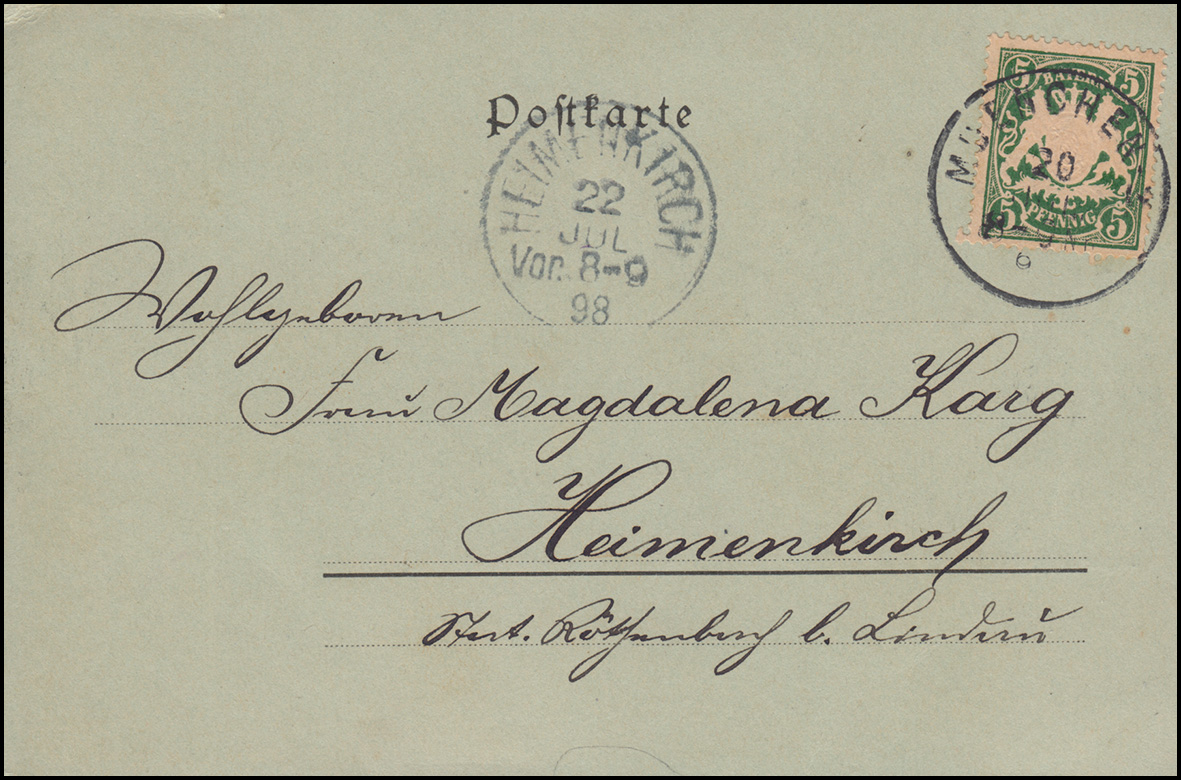 Postkarte
5 BAYERN 5
5 PFENNIG 5
MUENCHEN
20
HEIMENKIRCH
22
JUL
Vor. 8-9
98
Wohlgeboren
Frau Magdalena Karg
Heimenkirch
Stat. Röthenbach b. Lindau